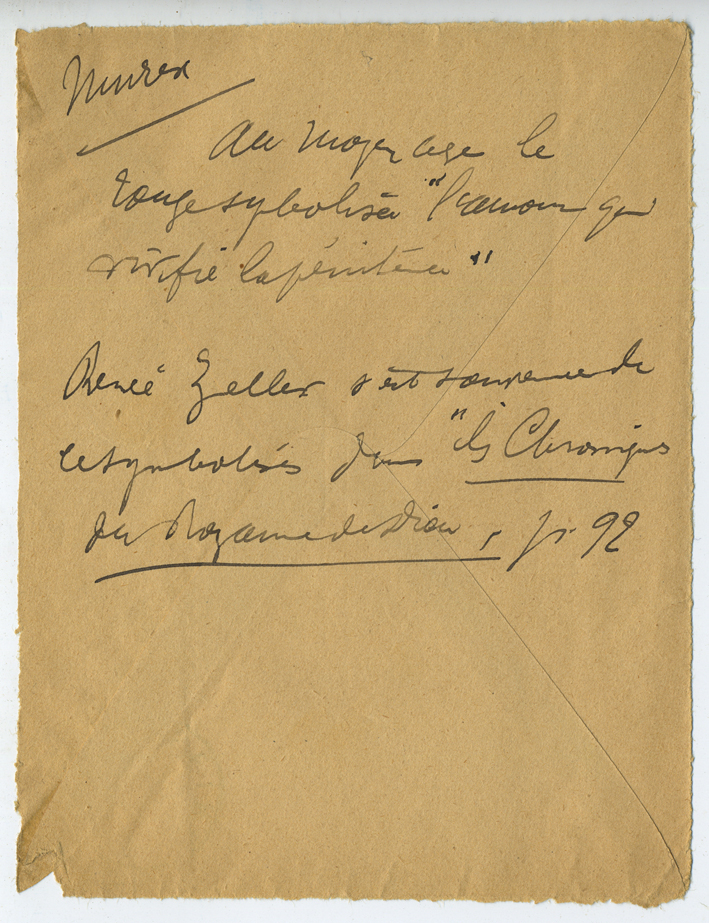 Murex
Au Moyen age le
rouge symbolisa "l'amour qui
vivifie la pénitence"
Renée Zeller s'est souvenue de
ce symbolisme dans "les Chroniques
du Royaume de Dieu, p. 92